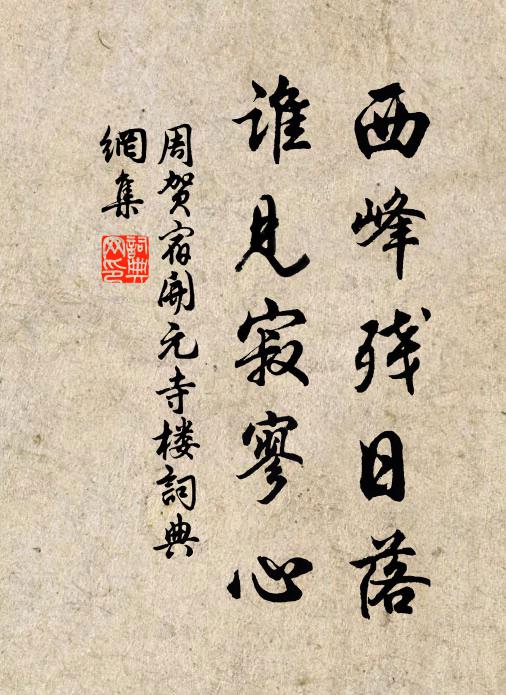 西峰残日落
谁见寂寥心
周贺宿開元寺楼詞典
網集
詞典
网印